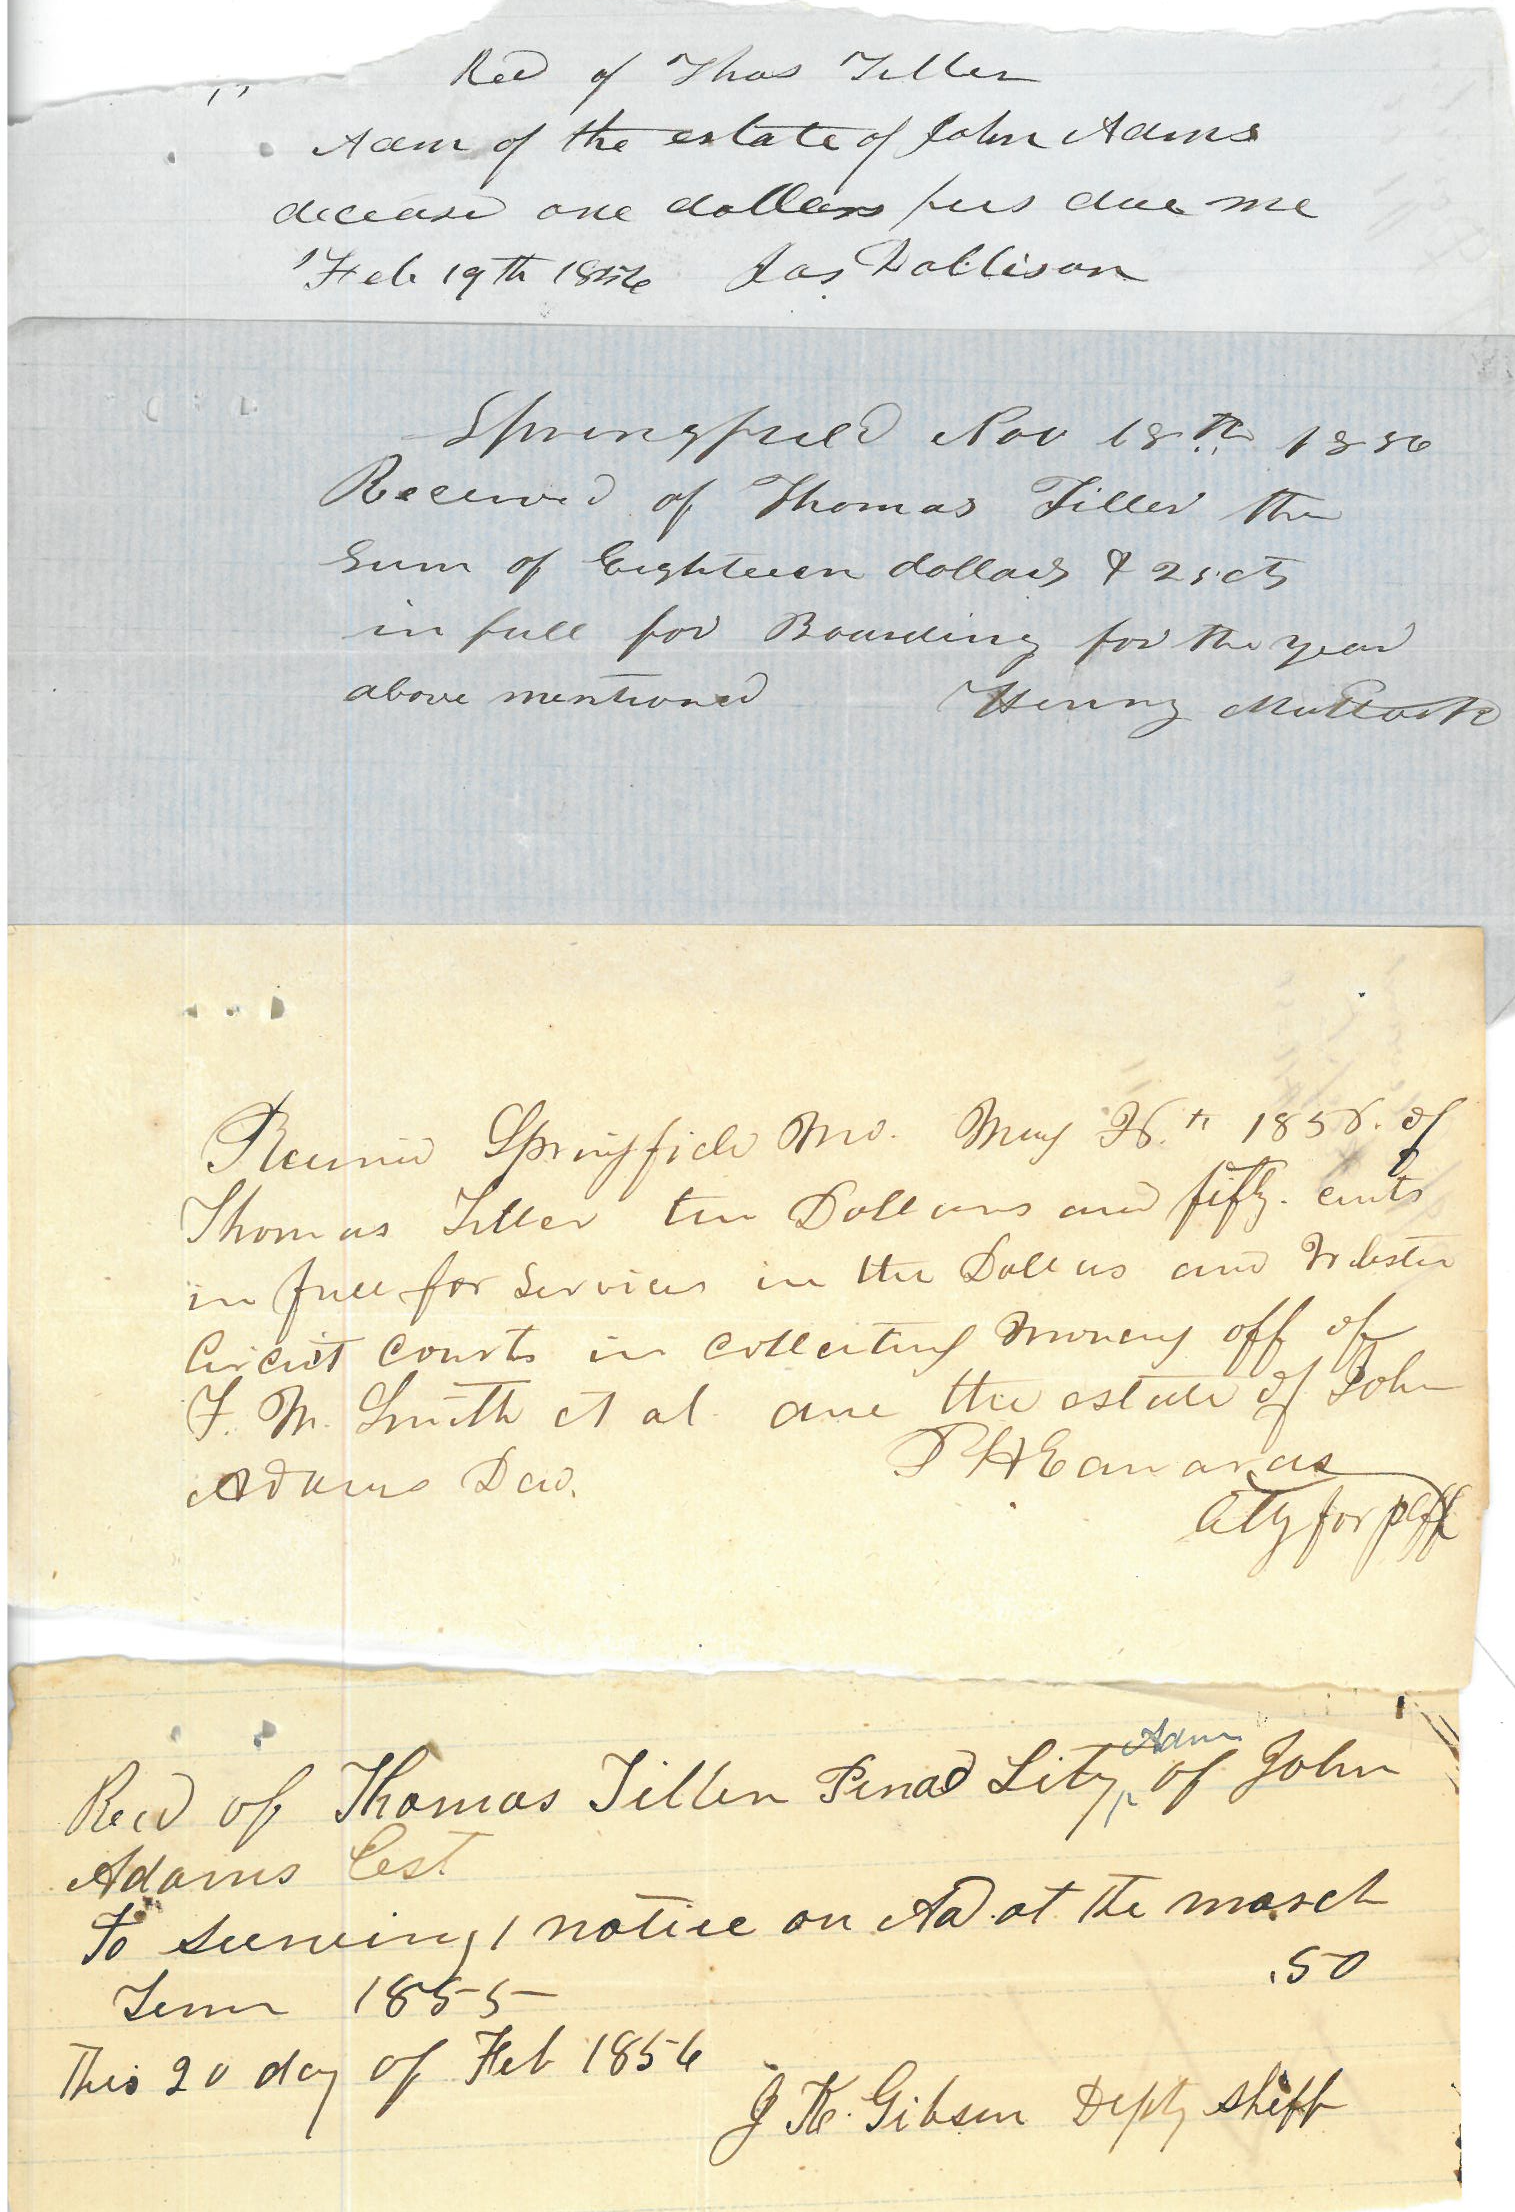 Recd of Thos Tiller
Adm of the estate of John Adams
deceased one dollars fees due me
Feb 19th 1856 Jas Dollison
Springfield Nov 18th 1856
Received of Thomas Tiller the
Sum of Eighteen dollars & 25 cts
in full for Boarding for the year
above mentioned Henry Matlock
Received Springfield Mo. May 1856. of
Thomas Tiller ten Dollars and fifty cents
in full for Services in the Dallas and Webster
Circuit Courts in collecting money off of
F. M. Smith et al. due the estate of John
Adams Decd. P H Edwards
Atty for plff
Recd of Thomas Tiller Adm of John
Adams Est
To serving 1 notice on Ad at the march
Term 1855 .50
This 20 day of Feb 1856
J K. Gibson Depty Shff